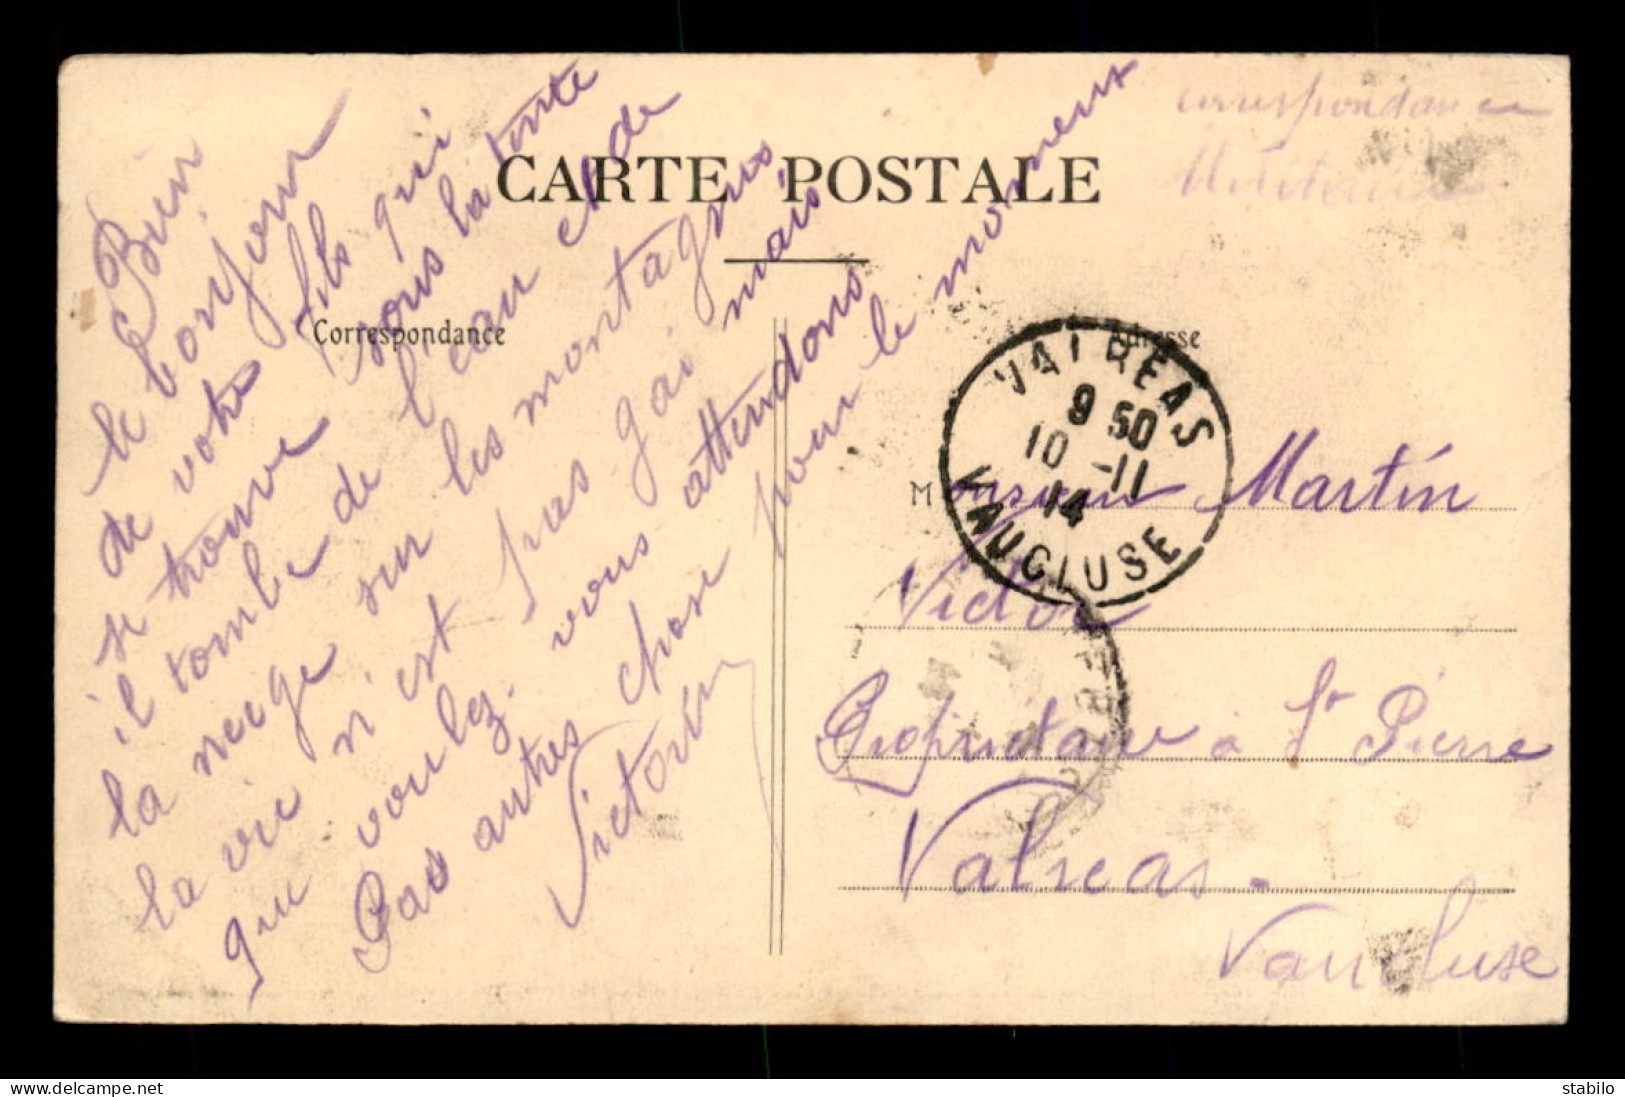 CARTE POSTALE
Correspondance
Adresse
correspondance
Militaire
Bien
le bonjour
de votre fils qui
se trouve sous la tente
il tombe de l'eau et de
la neige sur les montagnes
la vie n'est pas gai mais
que voulez. vous attendons
Pas autres chose pour le moment
Victorin
VALREAS
9 50
10 -11
14
VAUCLUSE
Monsieur Martin
Victor
Propriétaire à St Pierre
Valreas.
Vaucluse
stabilo
delcampe.net